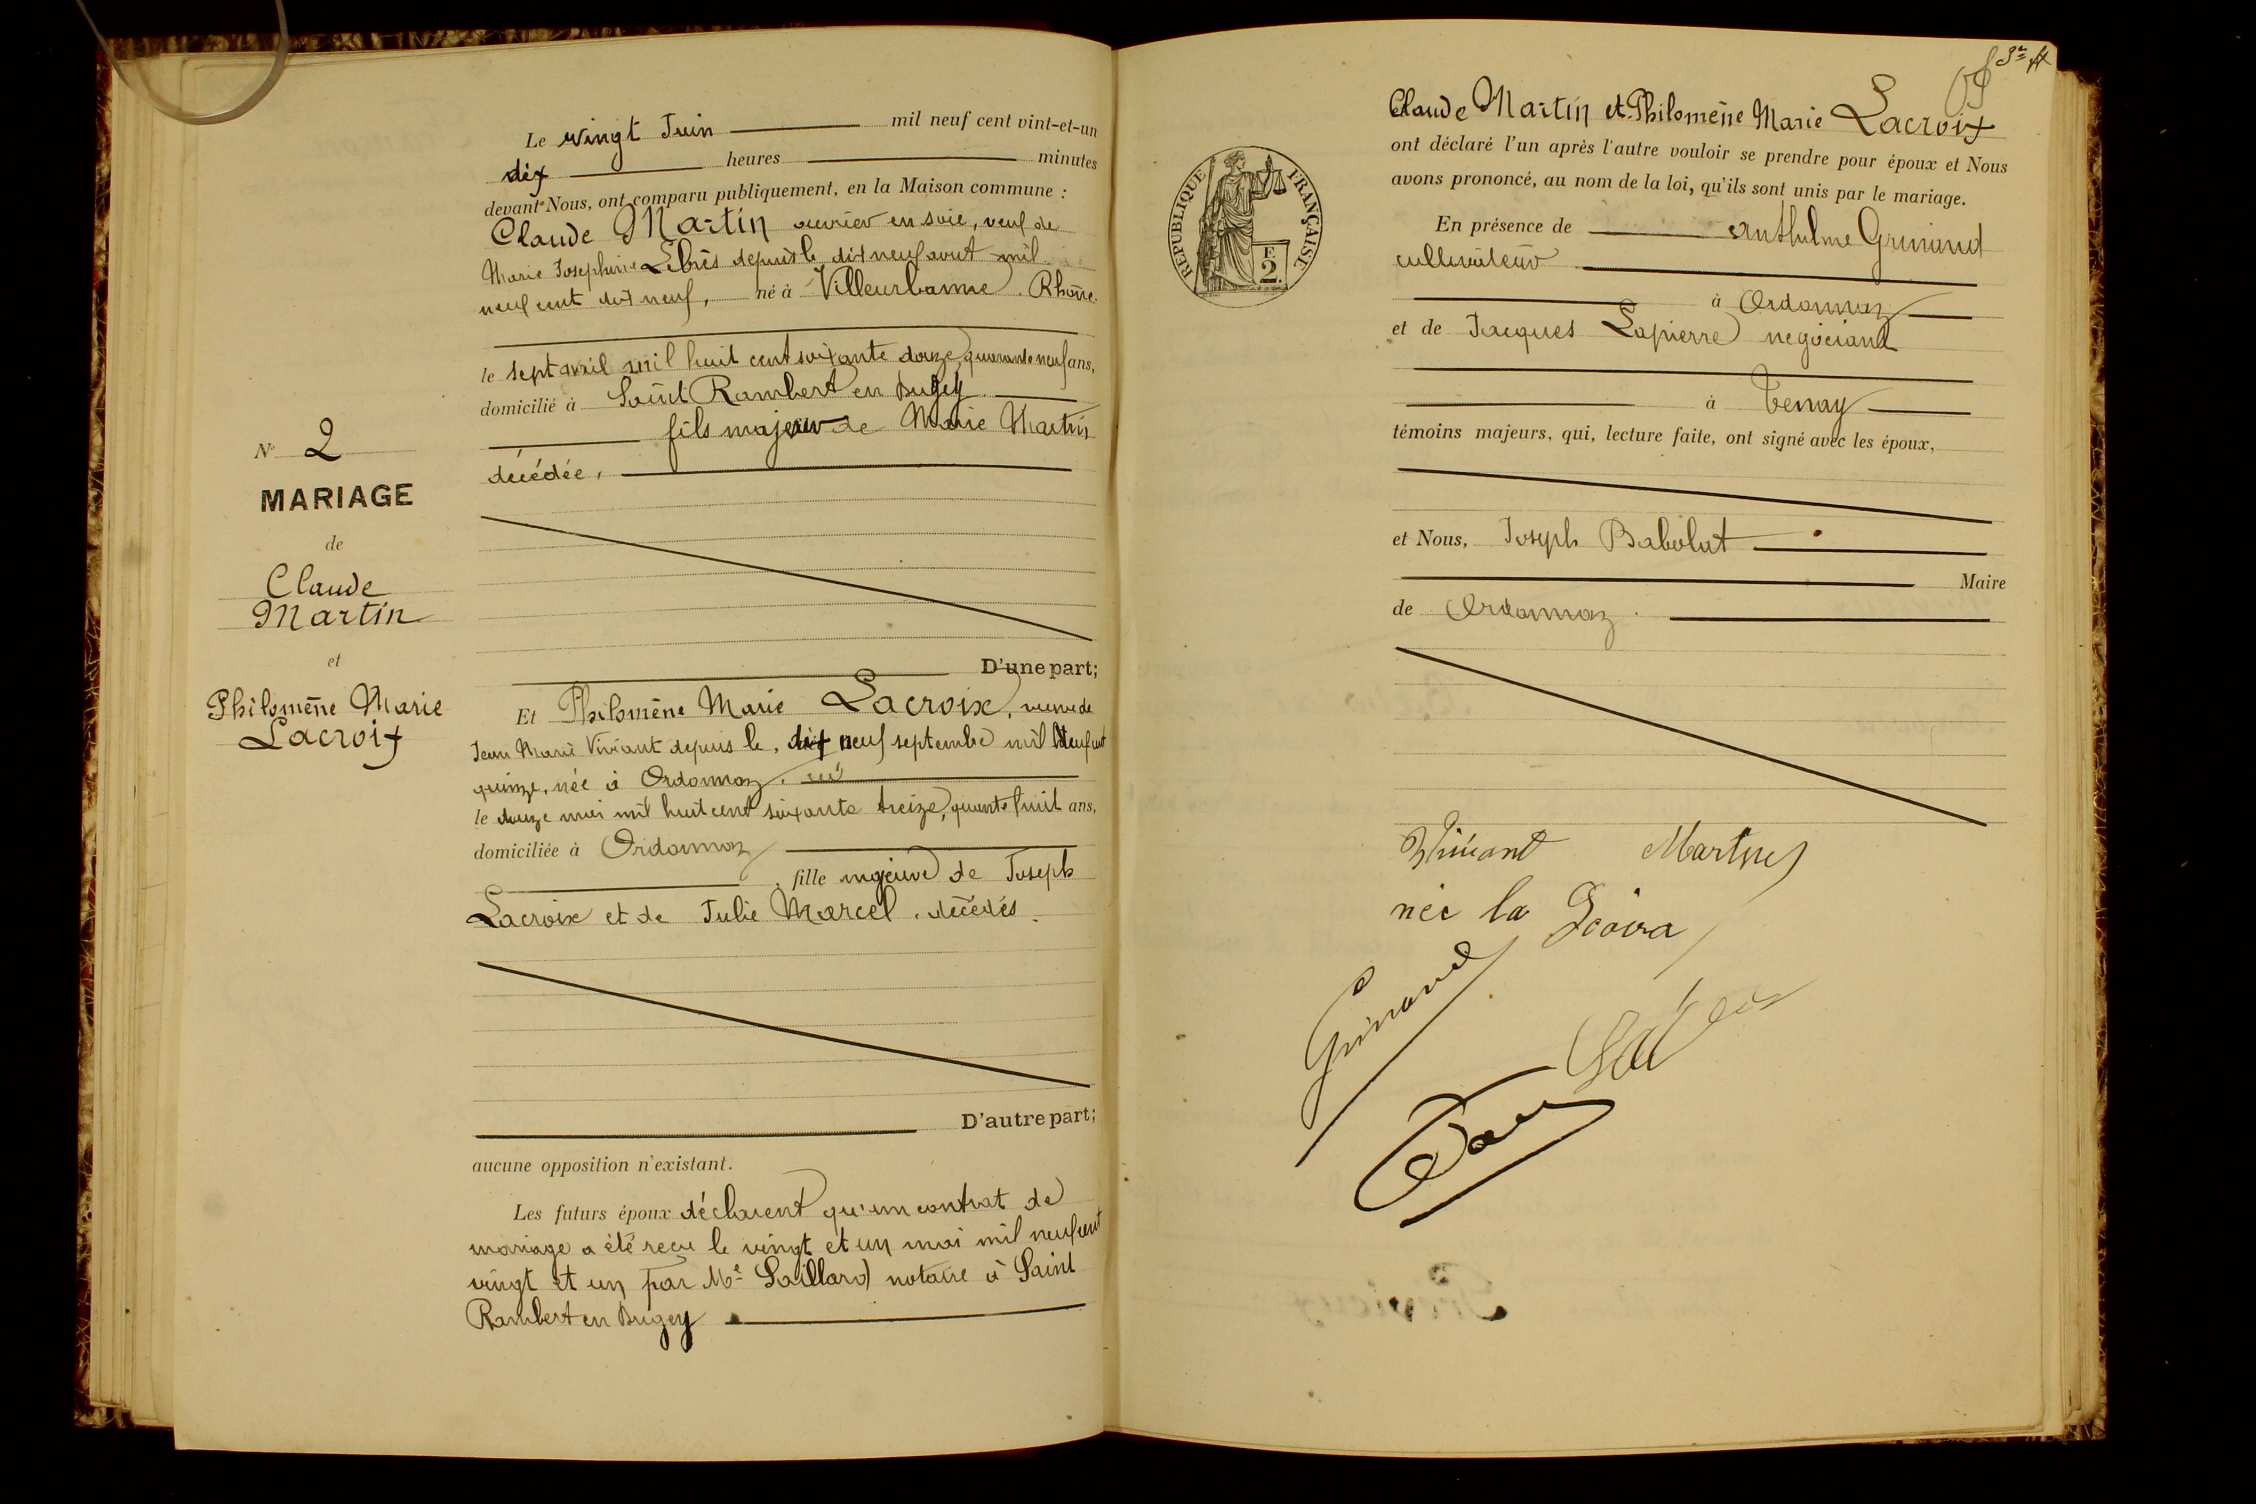 Le vingt Juin mil neuf cent vint-et-un
dix heures minutes
devant Nous, ont comparu publiquement, en la Maison commune :
Claude Martin ouvrier en soie, veuf de
Marie Josephine Lebrès depuis le dix neuf aout mil
neuf cent dix neuf, né à Villeurbanne. Rhône.
le sept avril mil huit cent soixante douze, quarante neuf ans,
domicilié à Saint Rambert en Bugey
fils majeur de Marie Martin
décédée,
N° 2
MARIAGE
de
Claude
Martin
et
Philomène Marie
Lacroix
D'une part;
Et Philomène Marie Lacroix, veuve de
Jean Marie Viviant depuis le, dix neuf septembre mil neuf cent
quinze, née à Ordonnaz.
le douze mai mil huit cent soixante treize, quarante huit ans,
domiciliée à Ordonnaz
, fille majeure de Joseph
Lacroix et de Julie Marcel, décédés.
D'autre part;
aucune opposition n'existant.
Les futurs époux déclarent qu'un contrat de
mariage a été reçu le vingt et un mai mil neuf cent
vingt et un par Me Saillard notaire à Saint
Rambert en Bugey
Claude Martin et Philomène Marie Lacroix
ont déclaré l'un après l'autre vouloir se prendre pour époux et Nous
avons prononcé, au nom de la loi, qu'ils sont unis par le mariage.
REPUBLIQUE FRANÇAISE
E
2.
En présence de Anthelme Grinand
cultivateur
à Ordonnaz
et de Jacques Lapierre negociant
à Tenay
témoins majeurs, qui, lecture faite, ont signé avec les époux,
et Nous, Joseph Babolat
Maire
de Ordonnaz.
Viviant Martin
née la
Grinand